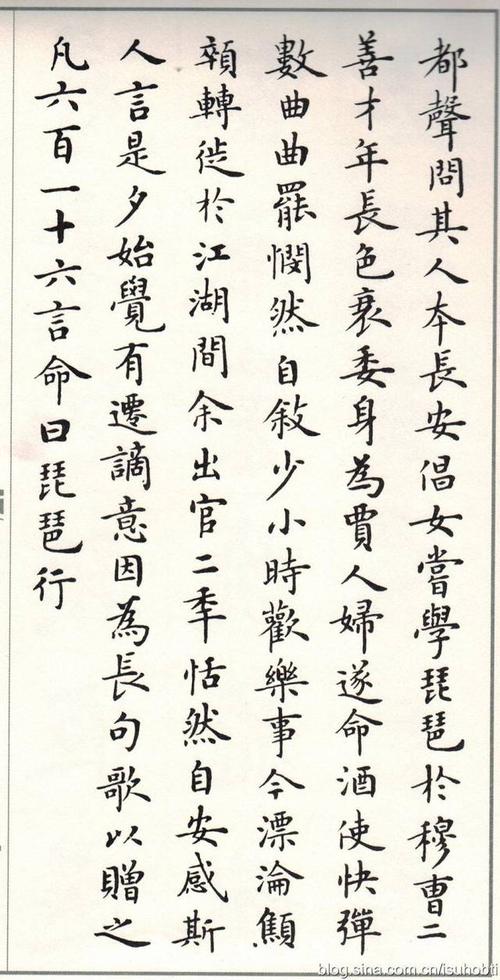 都聲問其人本長安倡女嘗學琵琶於穆曹二
善才年長色衰委身為賈人婦遂命酒使快彈
數曲曲罷憫然自敘少小時歡樂事今漂淪顦
顇轉徙於江湖間余出官二秊恬然自安感斯
人言是夕始覺有遷謫意因為長句歌以贈之
凡六百一十六言命曰琵琶行